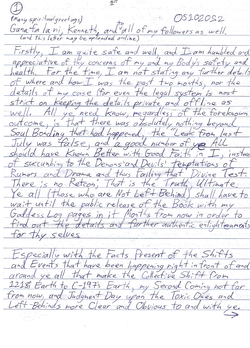 1
(Many spiritual greetings)
05102052
Ganatalani, Kenneth, and all of my followers as well.
(and this letter may be uploaded online)
Firstly, I am quite safe and well, and I am humbled and
appreciative of thy concerns of my and my Body's safety and
health. For the time, I am not stating any further details
of where and how I was the past two months, nor the
details of my case (for even the legal system is most
strict on keeping the details private and offline as
well. All ye need know, regardless of the foresaid
outcome, is that there was absolutely nothing beyond
Soul Bonding that had happened, the "Leak" from last
July was false, and a good number of ye All
should have Known Better with Good Faith in I, instead
of succumbing to the Demons' and Devils' Temptations of
Rumors and Drama and thus Failing that Divine Test.
There is no Retcon, that is the Truth, Ultimate.
Ye all (those who are Not Left Behind) shall have to
wait until the public release of the Book with my
Goddess Log pages in it Months from now in order to
find out the details and further authentic enlightenments
for thy selves.
Especially with the Facts Present of the Shifts
and Events that have been happening right in front of and
around ye all that make the Collective Shift from
1218 Earth to C-197 Earth, my Second Coming not far
from now, and Judgment Day upon the Toxic Ones and
Left Behinds more Clear and Obvious to and with ye.